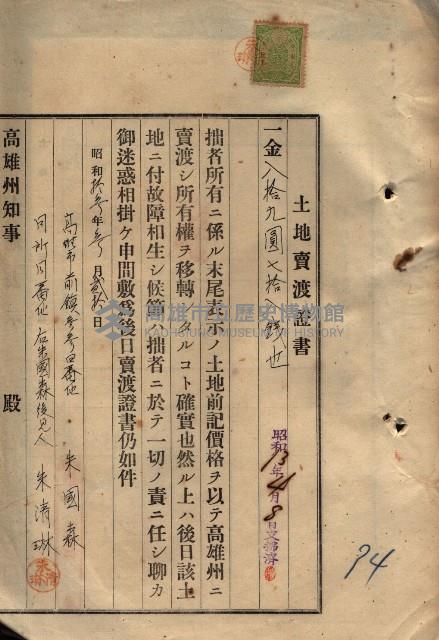 土地賣渡證書
一金八拾九圓七拾八錢也
拙者所有ニ係ル末尾表示ノ土地前記價格ヲ以テ高雄州ニ
賣渡シ所有權ヲ移轉シタルコト確實也然ル上ハ後日該土
地ニ付故障相生シ候節ハ拙者ニ於テ一切ノ責ニ任シ聊カ
御迷惑相掛ケ申間敷爲後日賣渡證書仍如件
昭和拾參年參月貳拾日
高雄市前鎮參參四番地 朱國森
同所同番地 右朱國森後見人 朱清琳
高雄州知事 殿
昭和13年4月8日交付濟
94
高雄市立歷史博物館
KAOHSIUNG MUSEUM OF HISTORY